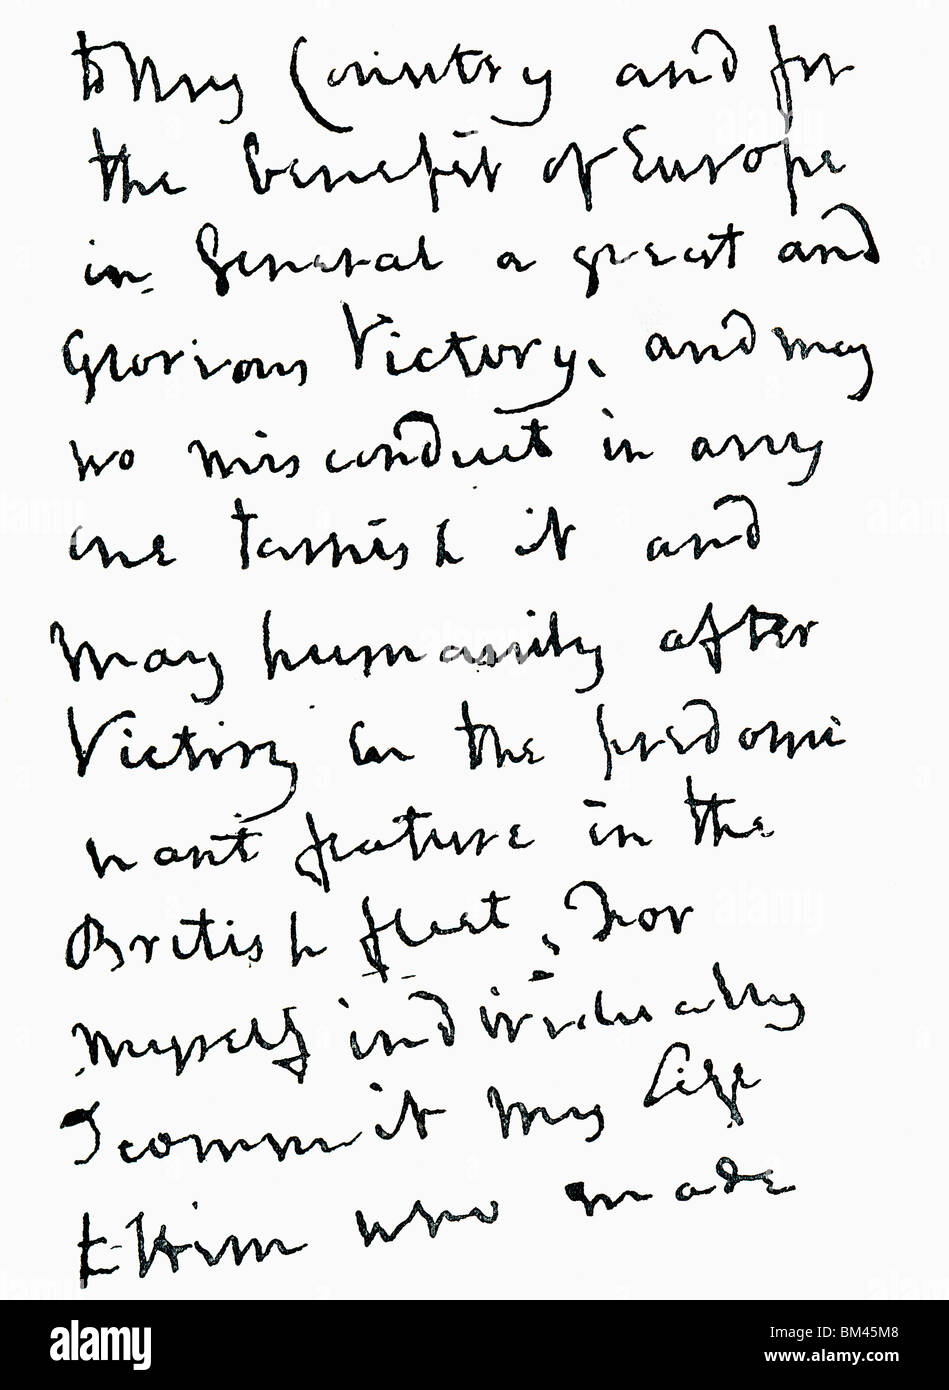 to My Country and for
the benefit of Europe
in General a great and
Glorious Victory, and may
no misconduct in any
one tarnish it and
May humanity after
Victory be the predomi
nant feature in the
British fleet, For
myself individually
I commit my Life
to Him who made
alamy
Image ID: BM45M8
www.alamy.com